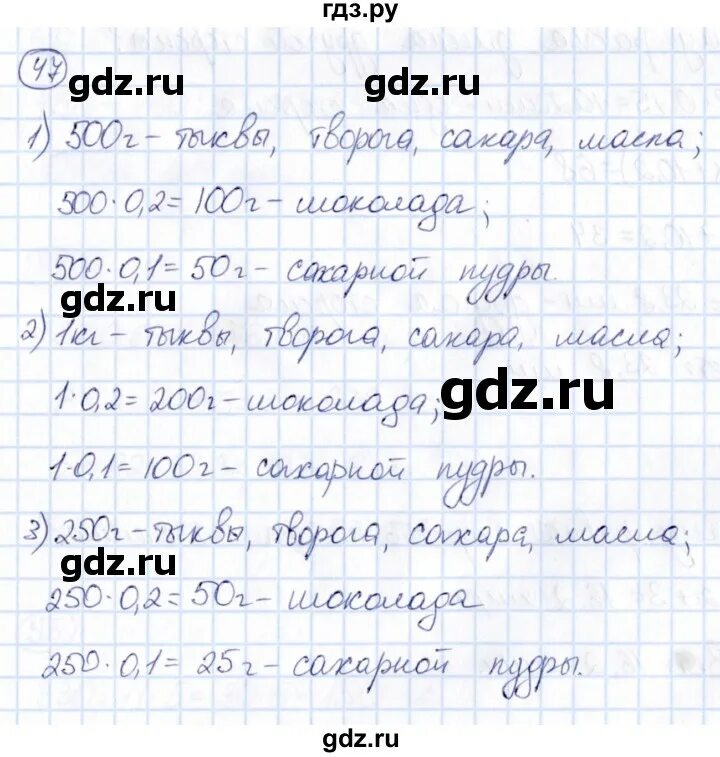 гдз.ру
47
gdz.ru gdz.ru
1) 500г – тыквы, творога, сахара, масла;
500·0,2=100г – шоколада;
500·0,1=50г – сахарной пудры.
gdz.ru
2) 1кг – тыквы, творога, сахара, масла;
1·0,2=200г – шоколада;
gdz.ru
1·0,1=100г – сахарной пудры.
3) 250г – тыквы, творога, сахара, масла;
gdz.ru
250·0,2=50г – шоколада
250·0,1=25г – сахарной пудры.
gdz.ru